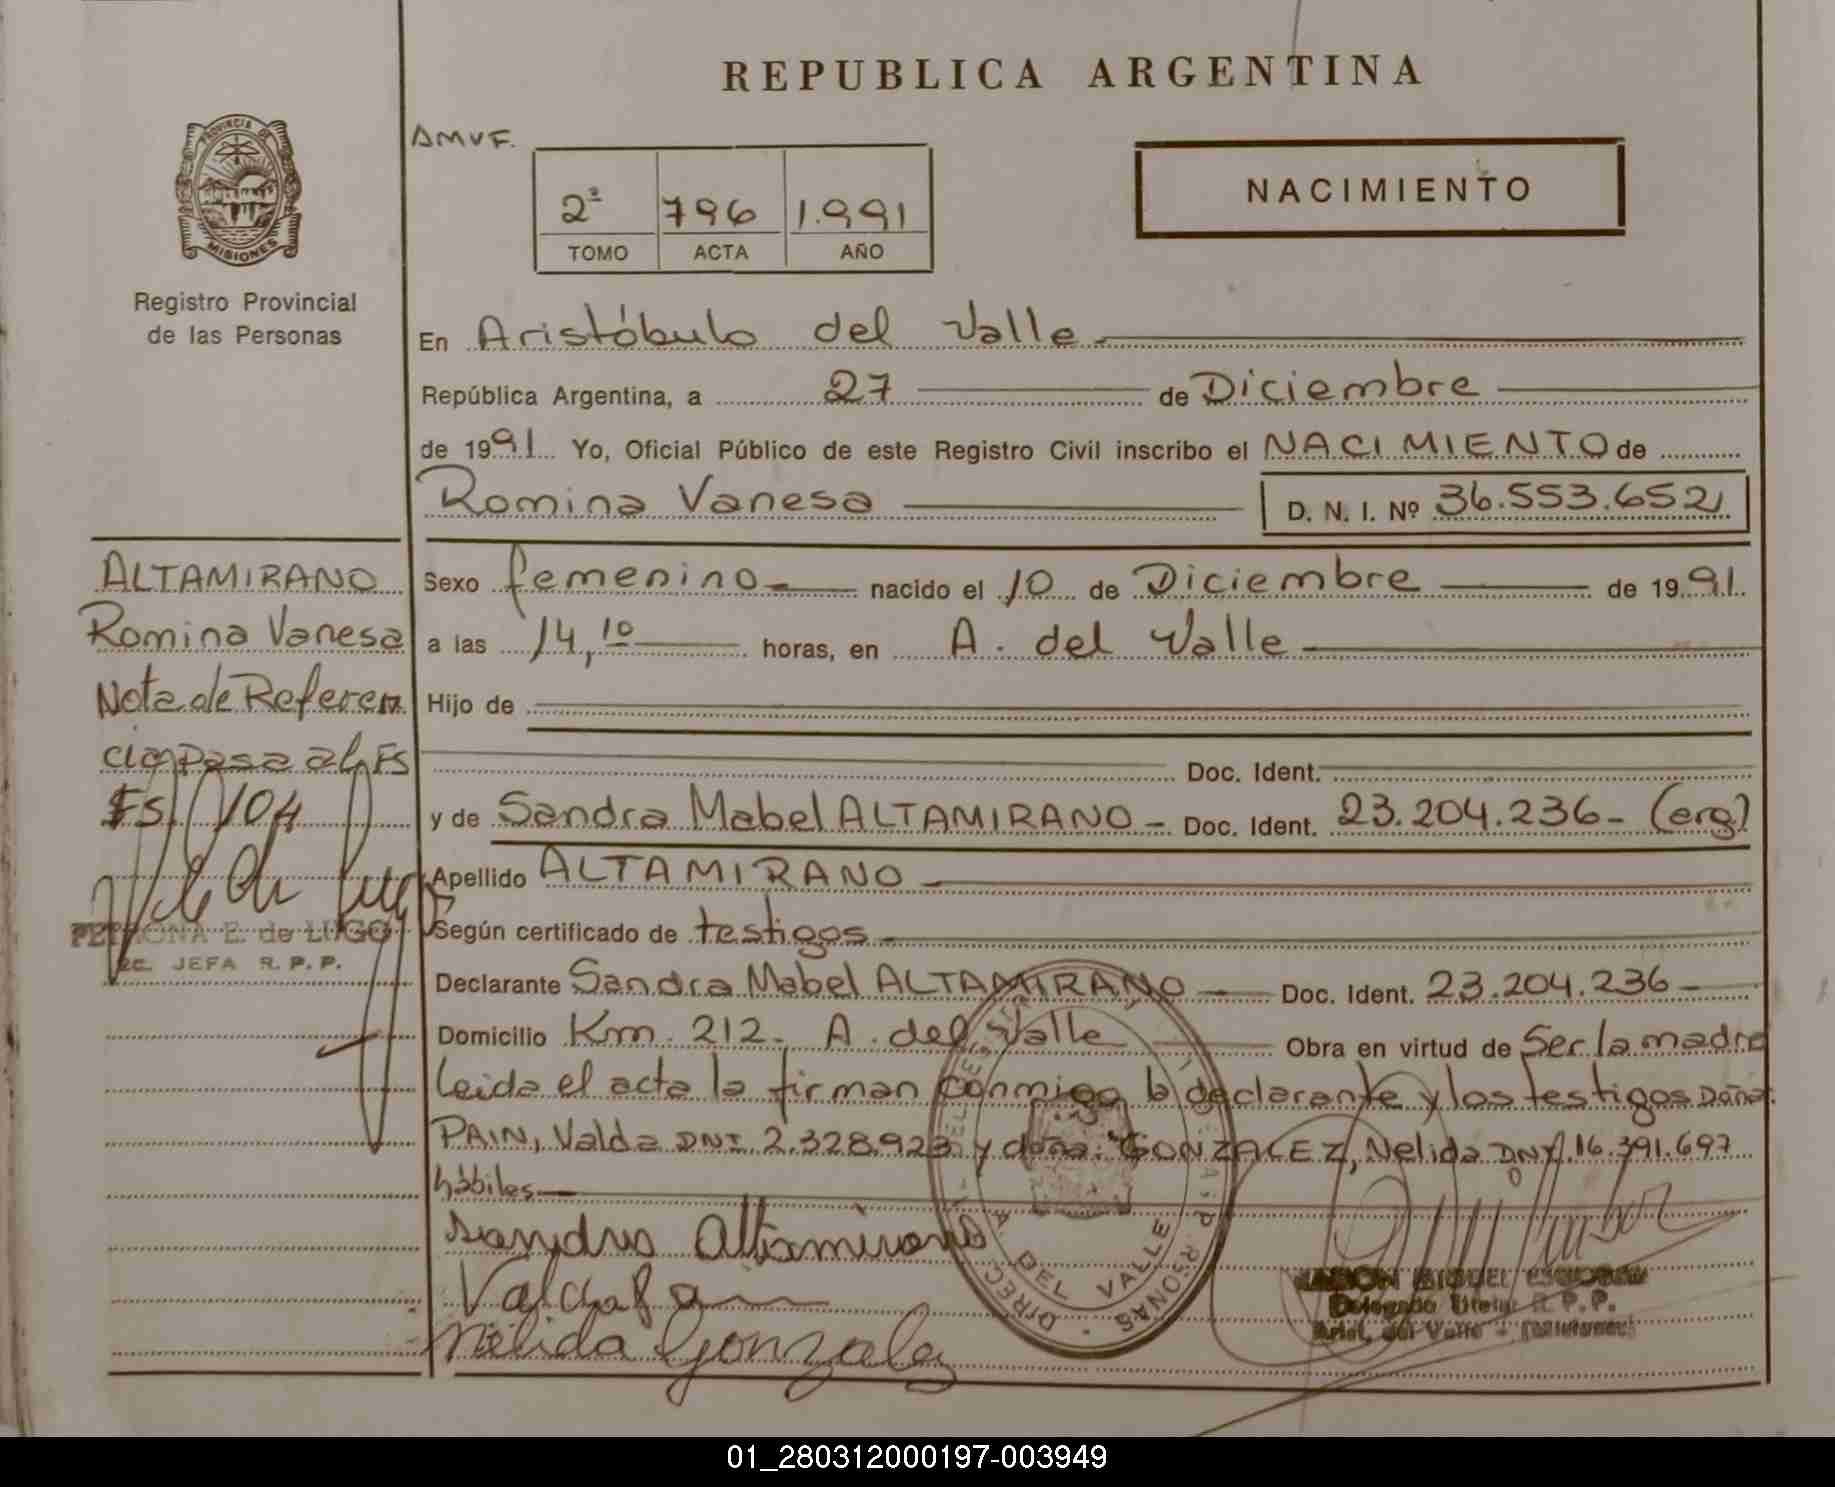 REPUBLICA ARGENTINA
PROVINCIA DE
MISIONES
Registro Provincial
de las Personas
AMVF.
2º 796 1.991
TOMO ACTA AÑO
NACIMIENTO
En Aristóbulo del Valle
República Argentina, a 27 de Diciembre
de 1991 Yo, Oficial Público de este Registro Civil inscribo el NACIMIENTO de
Romina Vanesa D. N. I. Nº 36.553.652
ALTAMIRANO
Romina Vanesa
Nota de Referen
cia pasa al Fs
Fs 104
PETRONA E. de LUGO
JEFA R. P. P.
Sexo femenino nacido el 10 de Diciembre de 1991.
a las 14,10 horas, en A. del Valle
Hijo de
Doc. Ident.
y de Sandra Mabel ALTAMIRANO - Doc. Ident. 23.204.236- (arg)
Apellido ALTAMIRANO
Según certificado de testigos
Declarante Sandra Mabel ALTAMIRANO Doc. Ident. 23.204.236
Domicilio Km. 212- A. del Valle Obra en virtud de Ser la madre
Leida el acta la firman conmigo la declarante y los testigos Doña:
PAIN, Valda DNI. 2.328.923 y doña: GONZALEZ, Nelida DNI. 16.391.697
hábiles
Sandra Altamirano
Nélida Gonzalez
A. DEL VALLE
Delegado R. P. P.
01_280312000197-003949